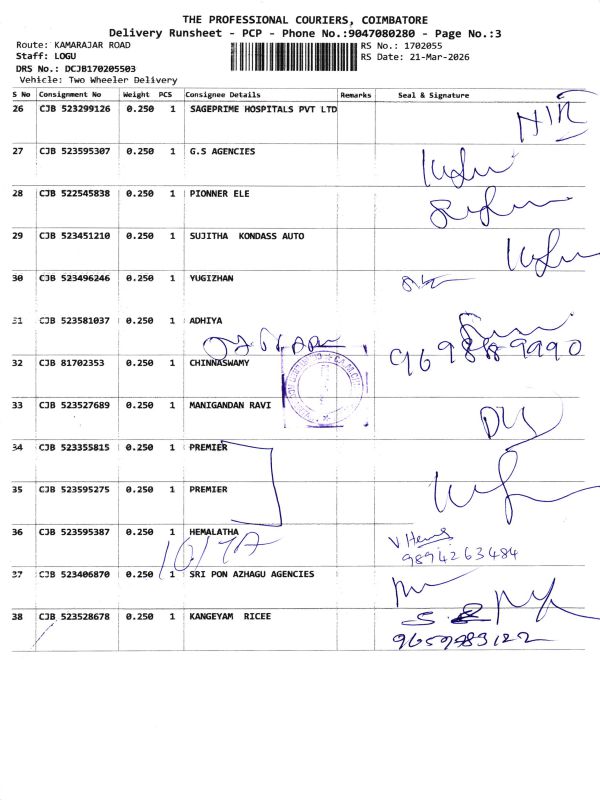 THE PROFESSIONAL COURIERS, COIMBATORE
Delivery Runsheet - PCP - Phone No.:9047080280 - Page No.:3
Route: KAMARAJAR ROAD RS No.: 1702055
Staff: LOGU RS Date: 21-Mar-2026
DRS No.: DCJB170205503
Vehicle: Two Wheeler Delivery
S No Consignment No Weight PCS Consignee Details Remarks Seal & Signature
26 CJB 523299126 0.250 1 SAGEPRIME HOSPITALS PVT LTD
27 CJB 523595307 0.250 1 G.S AGENCIES
28 CJB 522545838 0.250 1 PIONNER ELE
29 CJB 523451210 0.250 1 SUJITHA KONDASS AUTO
30 CJB 523496246 0.250 1 YUGIZHAN
31 CJB 523581037 0.250 1 ADHIYA
32 CJB 81702353 0.250 1 CHINNASWAMY
33 CJB 523527689 0.250 1 MANIGANDAN RAVI
34 CJB 523355815 0.250 1 PREMIER
35 CJB 523595275 0.250 1 PREMIER
36 CJB 523595387 0.250 1 HEMALATHA
9894263484
37 CJB 523406870 0.250 1 SRI PON AZHAGU AGENCIES
38 CJB 523528678 0.250 1 KANGEYAM RICEE